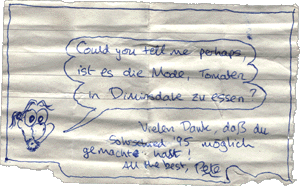 Could you tell me perhaps
ist es die Mode, Tomaten
in Dinsdale zu essen?
Vielen Dank, daß du
95 möglich
gemacht hast!
All the best, Pete